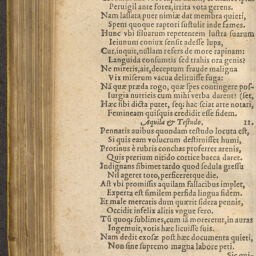 Peruigil ante fores, irrita vota gerens.
Nam lassata puer nimiæ dat membra quieti,
Spent quoque raptori sustulit inde fames.
Hunc vbi siluarum repetentem lustra suarum
Ieiunum coniux sensit adesse lupa,
Cur, inquit, nullam refers de more rapinam:
Languida consumtis sed trahis ora genis?
Ne mireris, ait, deceptum fraude maligna
Vix miserum vacua delituisse fuga:
Nã quæ præda rogo, quæ spes contingere pos-
Iurgia nutricis cum mihi verba darent? (set,
Hæc sibi dicta putet, seq; hac sciat arte notari,
Femineam quisquis credidit esse fidem.
Aquila & Testudo. II.
Pennatis auibus quondam testudo locuta est,
Si quis eam volucrum destituisset humi,
Protinus è rubris conchas proferret arenis,
Quis pretium nitido cortice bacca daret.
Indignans sibimet tardo quod sedula gressu
Nil ageret toto, perficeretque die.
Ast vbi promissis aquilam fallacibus implet,
Experta est similem perfida lingua fidem.
Et male mercatis dum quærit sidera pennis,
Occidit infelix alitis vngue fero.
Tũ quoq; sublimes, cum iã moreretur, in auras
Ingemuit, votis hæc licuisse suis.
Nam dedit exosæ post hæc documenta quieti,
Non sine supremo magna labore peti.